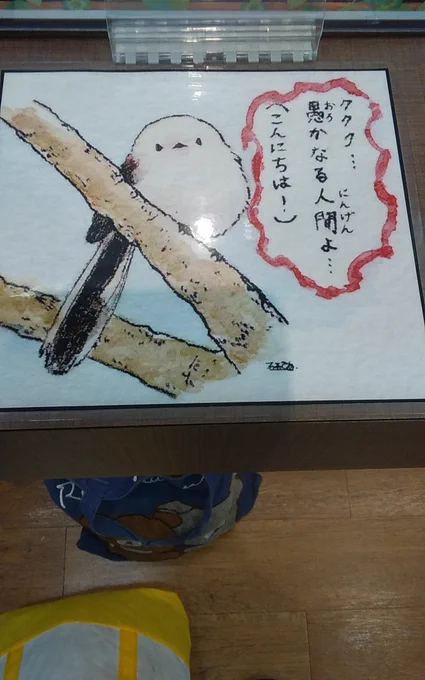 ククク…
愚かなる人間よ…
おろ
にんげん
(こんにちはー！)